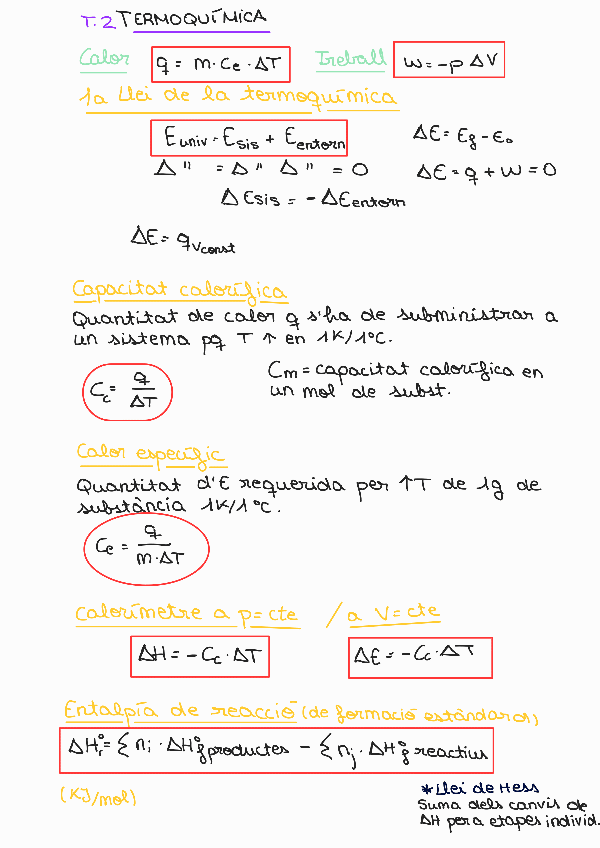 T.2 TERMOQUÍMICA
Calor q = m · Ce · ΔT Treball w = -p ΔV
1a Llei de la termoquímica
Euniv = Esis + Eentorn ΔE = Ef - Eo
Δ " = Δ " Δ " = 0 ΔE = q + w = 0
ΔEsis = - ΔEentorn
ΔE = qvconst
Capacitat calorífica
Quantitat de calor q s'ha de subministrar a
un sistema pq T ↑ en 1K/1°C.
Cc = q / ΔT Cm = capacitat calorífica en
un mol de subst.
Calor específic
Quantitat d'E requerida per ↑T de 1g de
substància 1K/1°C.
Ce = q / m·ΔT
calorímetre a p = cte / a V = cte
ΔH = - Cc · ΔT ΔE = - Cc · ΔT
Entalpía de reacció (de formació estàndards)
ΔHr° = Σ ni · ΔHf° productes - Σ nj · ΔHf° reactius
(KJ/mol)
*Llei de Hess
Suma dels canvis de
ΔH per a etapes individ.